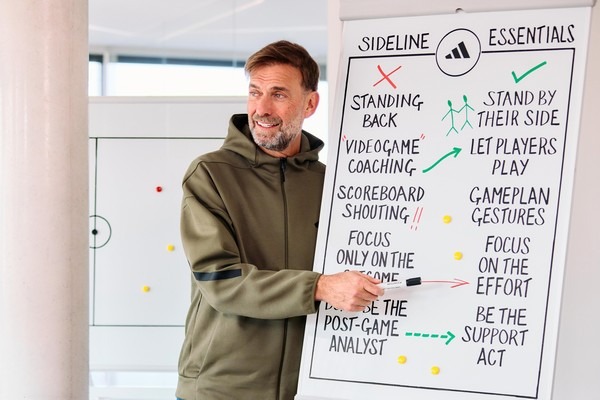 SIDELINE ESSENTIALS
STANDING
BACK
STAND BY
THEIR SIDE
"VIDEOGAME"
COACHING
LET PLAYERS
PLAY
SCOREBOARD
SHOUTING!!
GAMEPLAN
GESTURES
FOCUS
ONLY ON THE
FOCUS
ON THE
EFFORT
THE
POST-GAME
ANALYST
BE THE
SUPPORT
ACT